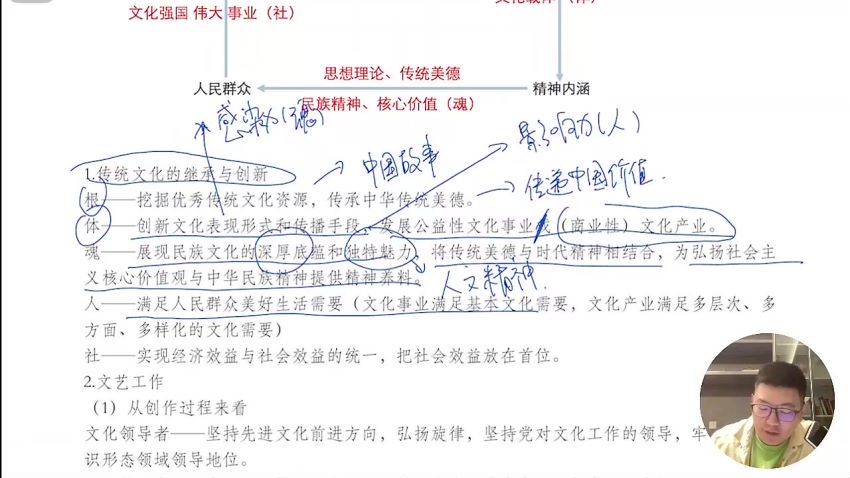 文化强国 伟大 事业（社）
思想理论、传统美德
人民群众
精神内涵
民族精神、核心价值（魂）
感染力（魂）
影响力（人）
1.传统文化的继承与创新
中国故事
传递中国价值.
根——挖掘优秀传统文化资源，传承中华传统美德。
体——创新文化表现形式和传播手段，发展公益性文化事业/（商业性）文化产业。
魂——展现民族文化的深厚底蕴和独特魅力，将传统美德与时代精神相结合，为弘扬社会主
义核心价值观与中华民族精神提供精神养料。
人文精神.
人——满足人民群众美好生活需要（文化事业满足基本文化需要，文化产业满足多层次、多
方面、多样化的文化需要）
社——实现经济效益与社会效益的统一，把社会效益放在首位。
2.文艺工作
（1）从创作过程来看
文化领导者——坚持先进文化前进方向，弘扬旋律，坚持党对文化工作的领导，牢
识形态领域领导地位。